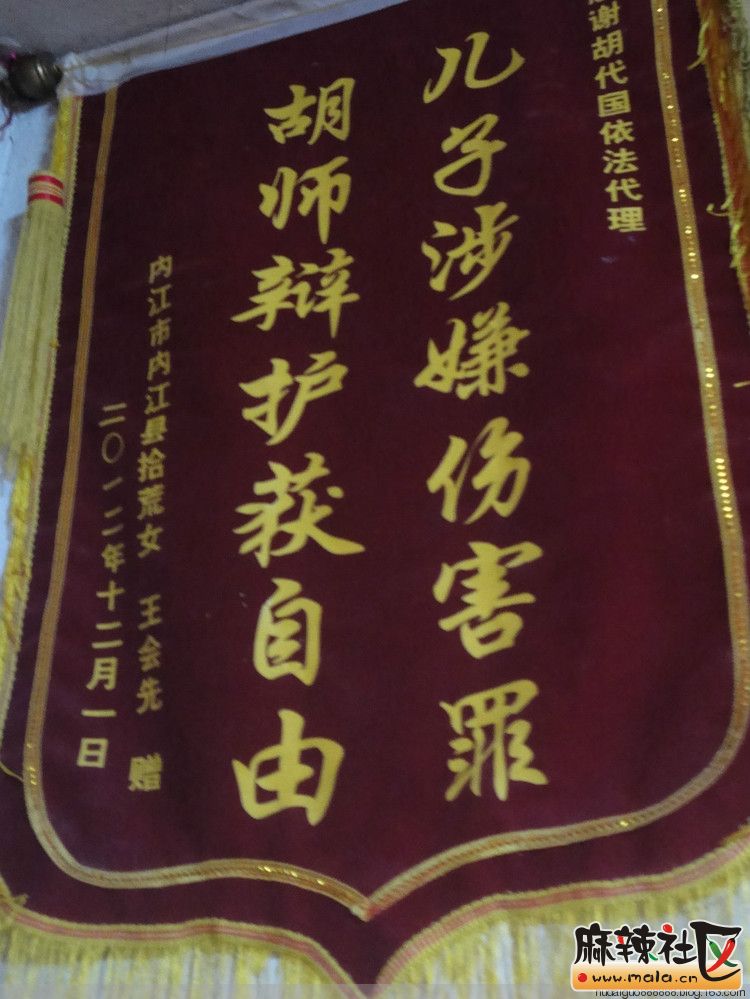 谢胡代国依法代理
儿子涉嫌伤害罪
胡师辩护获自由
内江市内江县拾荒女 王会先 赠
二〇一二年十二月一日
麻辣社区
www.mala.cn
hudaiguo888888.blog.163.com